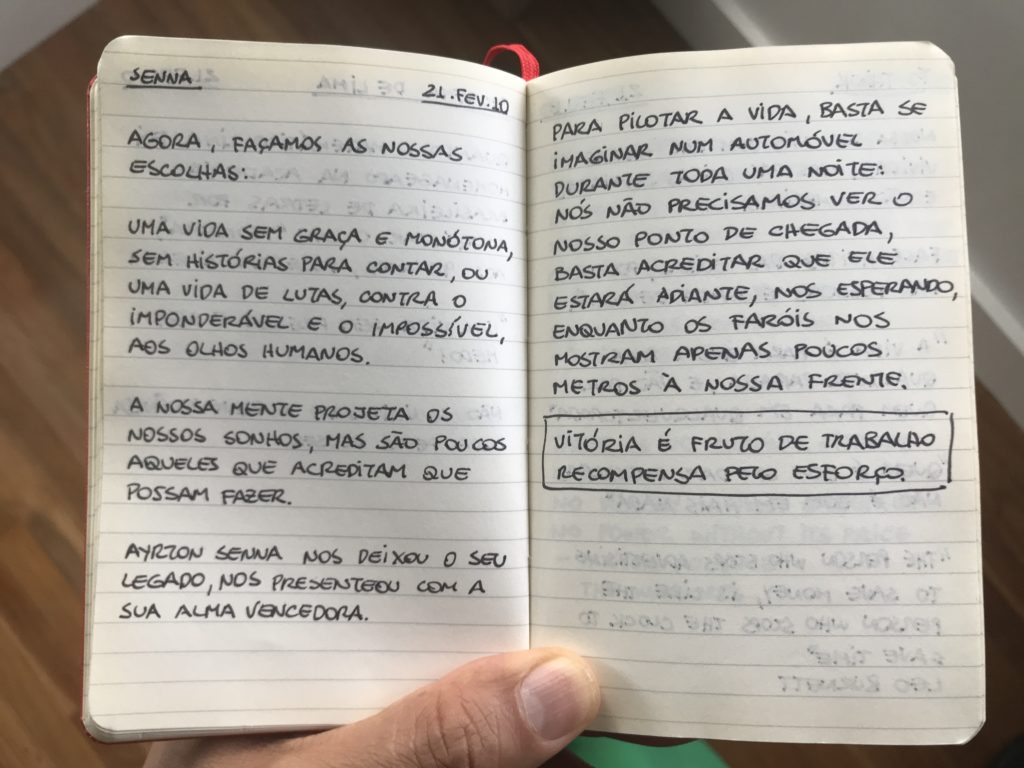 SENNA
21.FEV.10
AGORA, FAÇAMOS AS NOSSAS
ESCOLHAS:
UMA VIDA SEM GRAÇA E MONÓTONA,
SEM HISTÓRIAS PARA CONTAR, OU
UMA VIDA DE LUTAS, CONTRA O
IMPONDERÁVEL E O IMPOSSÍVEL,
AOS OLHOS HUMANOS.
A NOSSA MENTE PROJETA OS
NOSSOS SONHOS, MAS SÃO POUCOS
AQUELES QUE ACREDITAM QUE
POSSAM FAZER.
AYRTON SENNA NOS DEIXOU O SEU
LEGADO, NOS PRESENTEOU COM A
SUA ALMA VENCEDORA.
PARA PILOTAR A VIDA, BASTA SE
IMAGINAR NUM AUTOMÓVEL
DURANTE TODA UMA NOITE:
NÓS NÃO PRECISAMOS VER O
NOSSO PONTO DE CHEGADA,
BASTA ACREDITAR QUE ELE
ESTARÁ ADIANTE, NOS ESPERANDO,
ENQUANTO OS FARÓIS NOS
MOSTRAM APENAS POUCOS
METROS À NOSSA FRENTE.
VITÓRIA É FRUTO DE TRABALHO
RECOMPENSA PELO ESFORÇO.